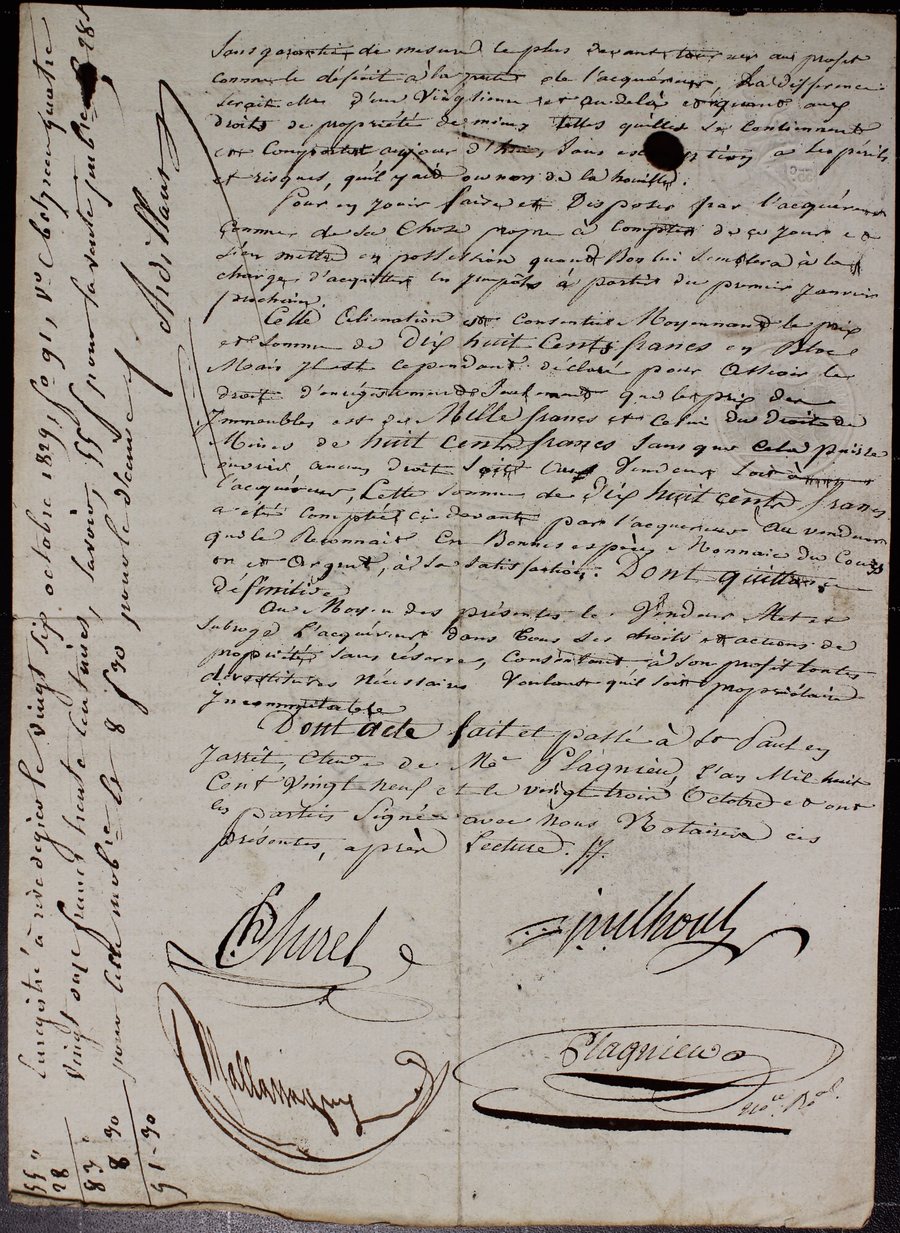 Sans garantie de mesure le plus devant tourner au profit
comme le déficit à la perte de l'acquéreur, La différence
serait elle d'un Vingtieme et au delà et quant aux
droits de propriété de mines telles qu'elles se Contiennent
et Comportent aujour d'hui, Sans exception a ses périls
et risques, qu'il y ait ou non de la houille.
Pour en Jouir faire et Disposer par l'acquéreur
Comme de sa Chose propre à Compter de ce jour et
S'en mettre en possession quand Bon lui Semblera à la
charge d'acquitter les Impôts à partir du premier Janvier
prochain.
Cette Alienation est Consentie Moyennant le prix
et Somme de Dix huit Cents francs en Bloc
Mais Il est cependant déclaré pour Asseoir le
droit d'enregistrement Seulement que le prix des
Immeubles est de Mille francs et Celui du Droit de
Mines de huit Cents francs Sans que Cela puisse
ouvrir aucun droit Soit au Vendeur Soit à
l'acquéreur, Cette Somme de Dix huit Cents francs
a été Comptée ci devant par l'acquereur Au vendeur
qui le Reconnait En Bonnes espèces Monnaie du Cours
or et Argent, à Sa Satisfaction. Dont quittance
définitive
Au Moyen des présentes le Vendeur Met et
Subroge L'acquéreur dans Tous Ses droits et actions de
propriété Sans réserve, Consentant à Son profit toutes
devestitures Nécessaires Voulant qu'il Soit propriétaire
Incommutable
Dont Acte fait et passé à St Paul en
Jarret, Etude de Me Plagnieu, l'an Mil huit
Cent Vingt Neuf et le vingt trois Octobre et ont
les parties Signé avec Nous Notaires ces
présentes, après Lecture. //.
Churel
Plagnieu
Nore Roal
Enregistré à rivedegier le Vingt Sept octobre 1829, fo 91, Vo Ce
Vingt onze francs trente centimes, Savoir, 55f pour la vente immobre 28f
pour celle mobre & 8f 30 pour le décime
55"
28
83"
8-30
91-30